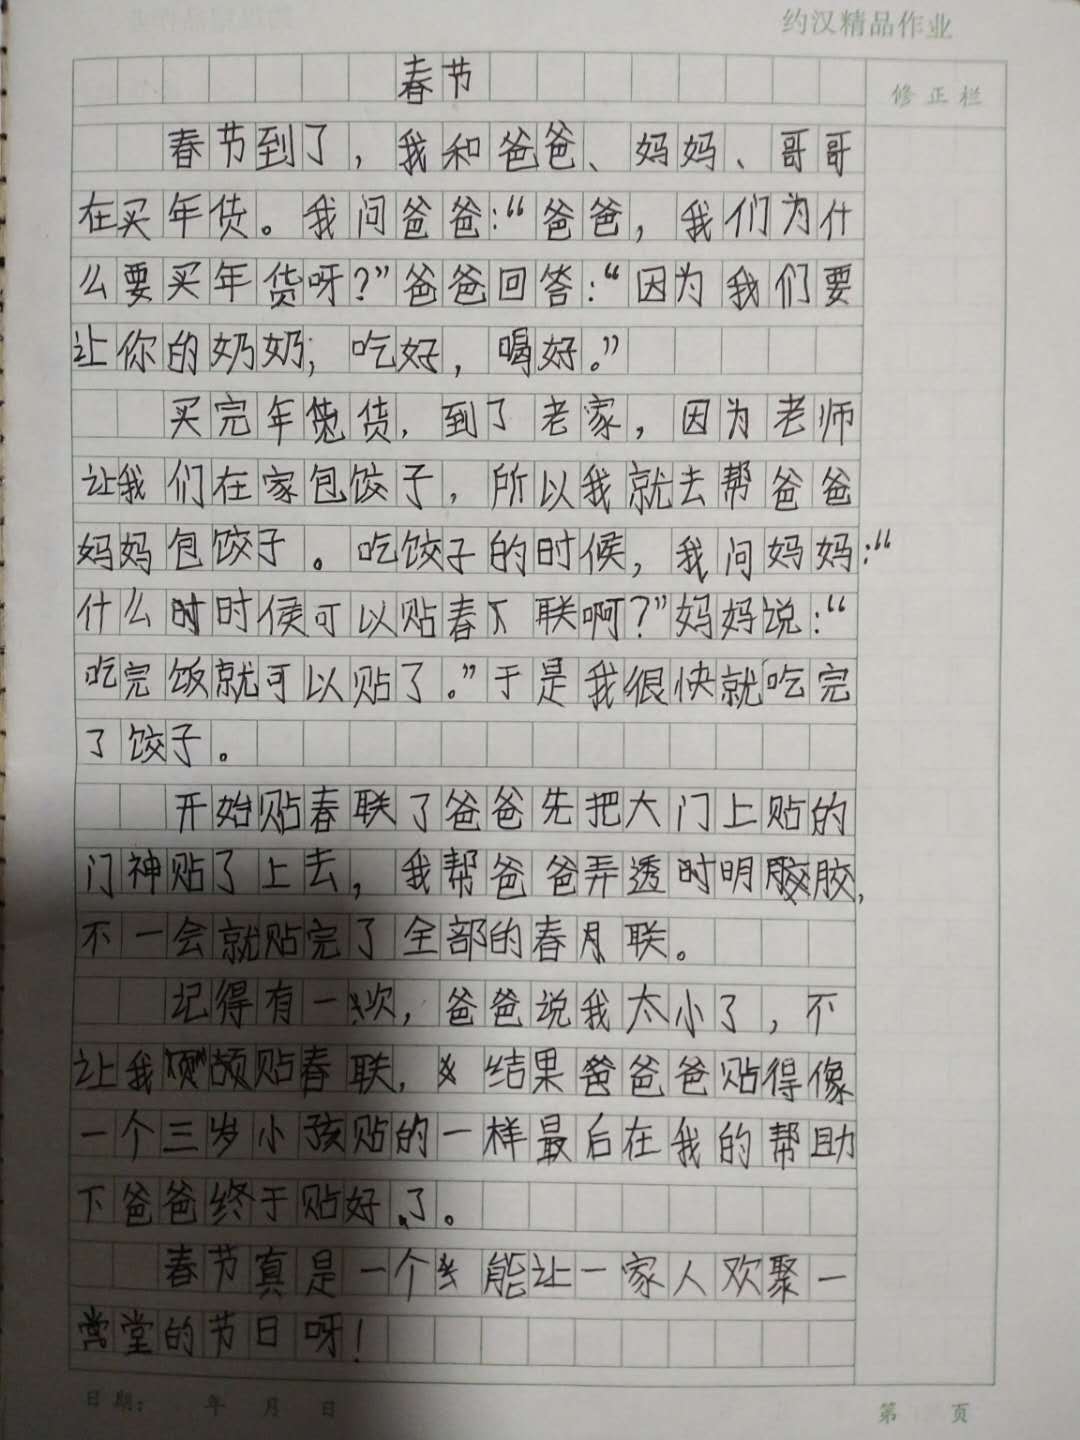 约汉精品作业
春节
修正栏
春节到了，我和爸爸、妈妈、哥哥
在买年货。我问爸爸：“爸爸，我们为什
么要买年货呀？”爸爸回答：“因为我们要
让你的奶奶，吃好，喝好。”
买完年货，到了老家，因为老师
让我们在家包饺子，所以我就去帮爸爸
妈妈包饺子。吃饺子的时候，我问妈妈：“
什么时候可以贴春联啊？”妈妈说：“
吃完饭就可以贴了。”于是我很快就吃完
了饺子。
开始贴春联了爸爸先把大门上贴的
门神贴了上去，我帮爸爸弄透明胶，
不一会就贴完了全部的春联。
记得有一次，爸爸说我太小了，不
让我贴春联，结果爸爸贴得像
一个三岁小孩贴的一样最后在我的帮助
下爸爸终于贴好了。
春节真是一个能让一家人欢聚一
堂的节日呀！
日期： 年 月 日
第 页